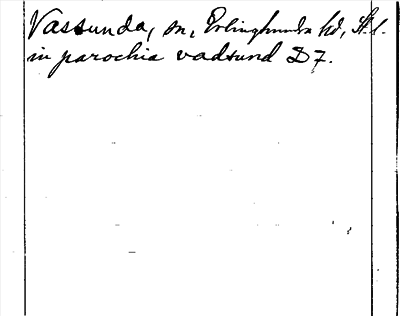 Vassunda, sn, Erlinghundra hd, St. l.
in parochia vadsund D7.